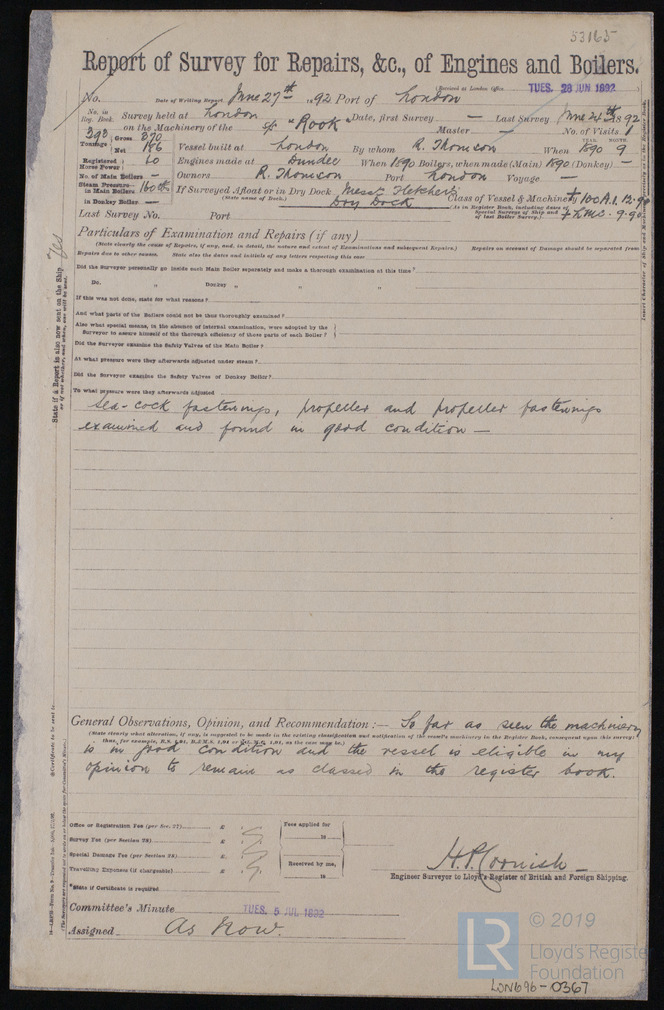 53165
Report of Survey for Repairs, &c., of Engines and Boilers.
(Received at London Office TUES. 28 JUN 1892
No. Date of Writing Report June 27th 1892 Port of London
No. in Reg. Book. Survey held at London Date, first Survey — Last Survey June 24th 1892
393 on the Machinery of the S/S "Rook" Master — No. of Visits 1
Tonnage Gross 870 Net 186 Vessel built at London By whom R. Thomson When YEAR. 1890 MONTH. 9
Registered Horse Power 60 Engines made at Dundee When 1890 Boilers, when made (Main) 1890 (Donkey) —
No. of Main Boilers — Owners R. Thomson Port London Voyage —
Steam Pressure— in Main Boilers 160 lbs If Surveyed Afloat or in Dry Dock Messrs Fletcher's Class of Vessel & Machinery + 100 A.1. 12.90
in Donkey Boiler — (State name of Dock.) Dry Dock (As in Register Book, including dates of Special Surveys of Ship and of last Boiler Survey.) + LMC. 9.90
Last Survey No. Port
Particulars of Examination and Repairs (if any)
(State clearly the cause of Repairs, if any, and, in detail, the nature and extent of Examinations and subsequent Repairs.) Repairs on account of Damage should be separated from
Repairs due to other reason. State also the dates and initials of any letters respecting this case
Did the Surveyor personally go inside each Main Boiler separately and make a thorough examination at this time?
Do. „ Donkey „ „ „
If this was not done, state for what reasons?
And what parts of the Boilers could not be thus thoroughly examined?
Also what special means, in the absence of internal examination, were adopted by the
Surveyor to assure himself of the thorough efficiency of those parts of each Boiler?
Did the Surveyor examine the Safety Valves of the Main Boiler?
At what pressure were they afterwards adjusted under steam?
Did the Surveyor examine the Safety Valves of Donkey Boiler?
To what pressure were they afterwards adjusted
Sea-cock fastenings, propeller and propeller fastenings
examined and found in good condition —
State if a Report is also now sent on the Ship Yes
General Observations, Opinion, and Recommendation:— So far as seen the machinery
(State clearly what alteration, if any, is suggested to be made in the existing classification and notification of the vessel's machinery in the Register Book, consequent upon this survey;
is in good condition and the vessel is eligible in my
opinion to remain as classed in the register book.
Office or Registration Fee (per Sec. 27) £
Survey Fee (per Section 28) £
Special Damage Fee (per Section 28) £
Travelling Expenses (if chargeable) £
Fees applied for
18
Received by me,
18
*State if Certificate is required
H.P. Cornish
Engineer Surveyor to Lloyd's Register of British and Foreign Shipping.
Committee's Minute TUES. 5 JUL 1892
Assigned As Now.
© 2019
LR
Lloyd's Register
Foundation
LDN696-0367